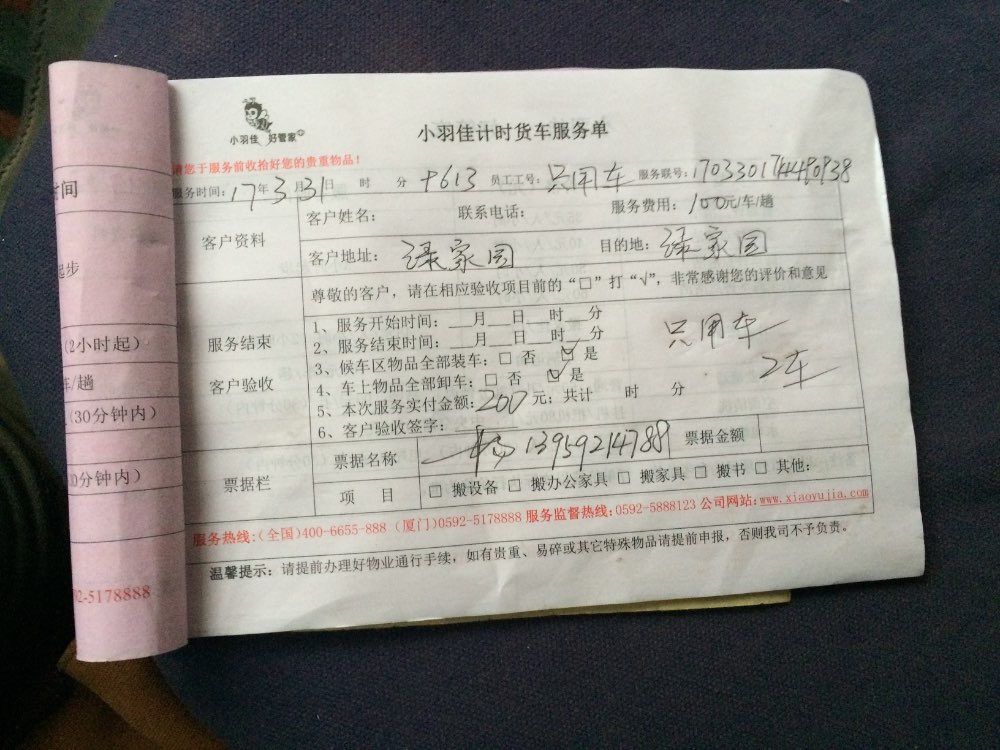 小羽佳 好管家
小羽佳计时货车服务单
请您于服务前收拾好您的贵重物品！
服务时间：17年3月31日 时 分 +613 员工工号：只用车 服务联号：
客户资料
客户姓名： 联系电话： 服务费用：100元/车/趟
客户地址：绿家园 目的地：绿家园
尊敬的客户，请在相应验收项目前的“□”打“√”，非常感谢您的评价和意见
服务结束
客户验收
1、服务开始时间：___月___日___时___分
2、服务结束时间：___月___日___时___分
3、候车区物品全部装车：□ 否 ☑ 是
4、车上物品全部卸车：□ 否 ☑ 是
5、本次服务实付金额：200元；共计 时 分
6、客户验收签字：
只用车
2车
13959214788
票据栏
票据名称 票据金额
项 目 □ 搬设备 □ 搬办公家具 □ 搬家具 □ 搬书 □ 其他：
服务热线:(全国)400-6655-888 (厦门)0592-5178888 服务监督热线:0592-5888123 公司网站:www.xiaoyujia.com
温馨提示：请提前办理好物业通行手续，如有贵重、易碎或其它特殊物品请提前申报，否则我司不予负责。
时间
起步
(2小时起)
车/趟
(30分钟内)
30分钟内)
92-5178888